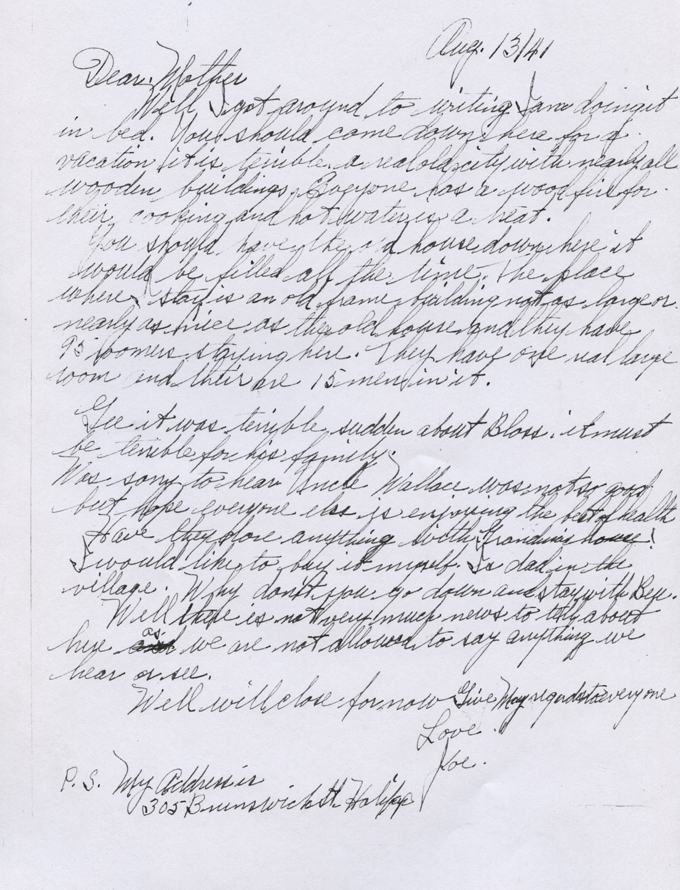 Aug. 13/41
Dear Mother
Well I got around to writing I am doing it
in bed. You should come down here for a
vacation it is terrible a real old city with nearly all
wooden buildings. Everyone has a wood fire for
their cooking and hot water is a treat.
You should have the old house down here it
would be filled all the time. The place
where I stay is an old frame building not as large or
nearly as nice as the old house and they have
95 roomers staying here. They have one real large
room and their are 15 men in it.
Gee it was terrible sudden about Bloss. it must
be terrible for his family.
Was sorry to hear Uncle Wallace was not so good
but hope everyone else is enjoying the best of health
Have they done anything with Grandma's house!
I would like to buy it myself. Is dad in the
village. Why don't you go down and stay with
Well there is not very much news to about
here as we are not allowed to say anything we
hear or see.
Well will close for now Give May regards to everyone
Love
Joe.
P.S. My Address is
305 Brunswick St. Halifax